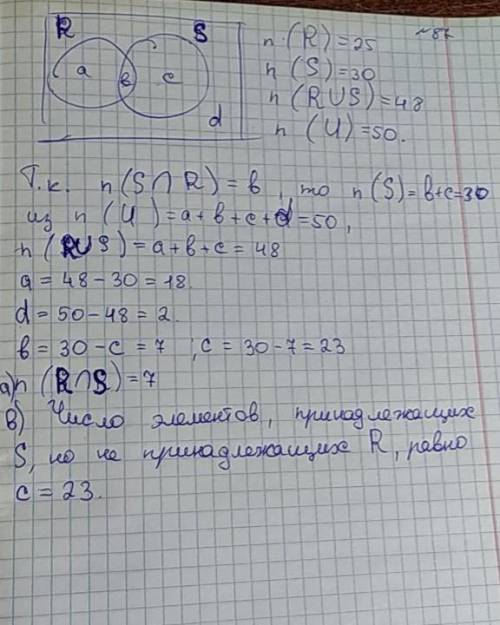 R S n (R) = 25 №87
a b c n (S) = 30
d n (R∪S) = 48
n (U) = 50.
Т.к. n (S∩R) = b, то n (S) = b+c=30
из n (U) = a+b+c+d=50,
n (R∪S) = a+b+c = 48
a = 48-30 = 18.
d = 50-48 = 2.
b = 30-c = 7 ; c = 30-7 = 23
а) n (R∩S) = 7
в) Число элементов, принадлежащих
S, но не принадлежащих R, равно
c = 23.